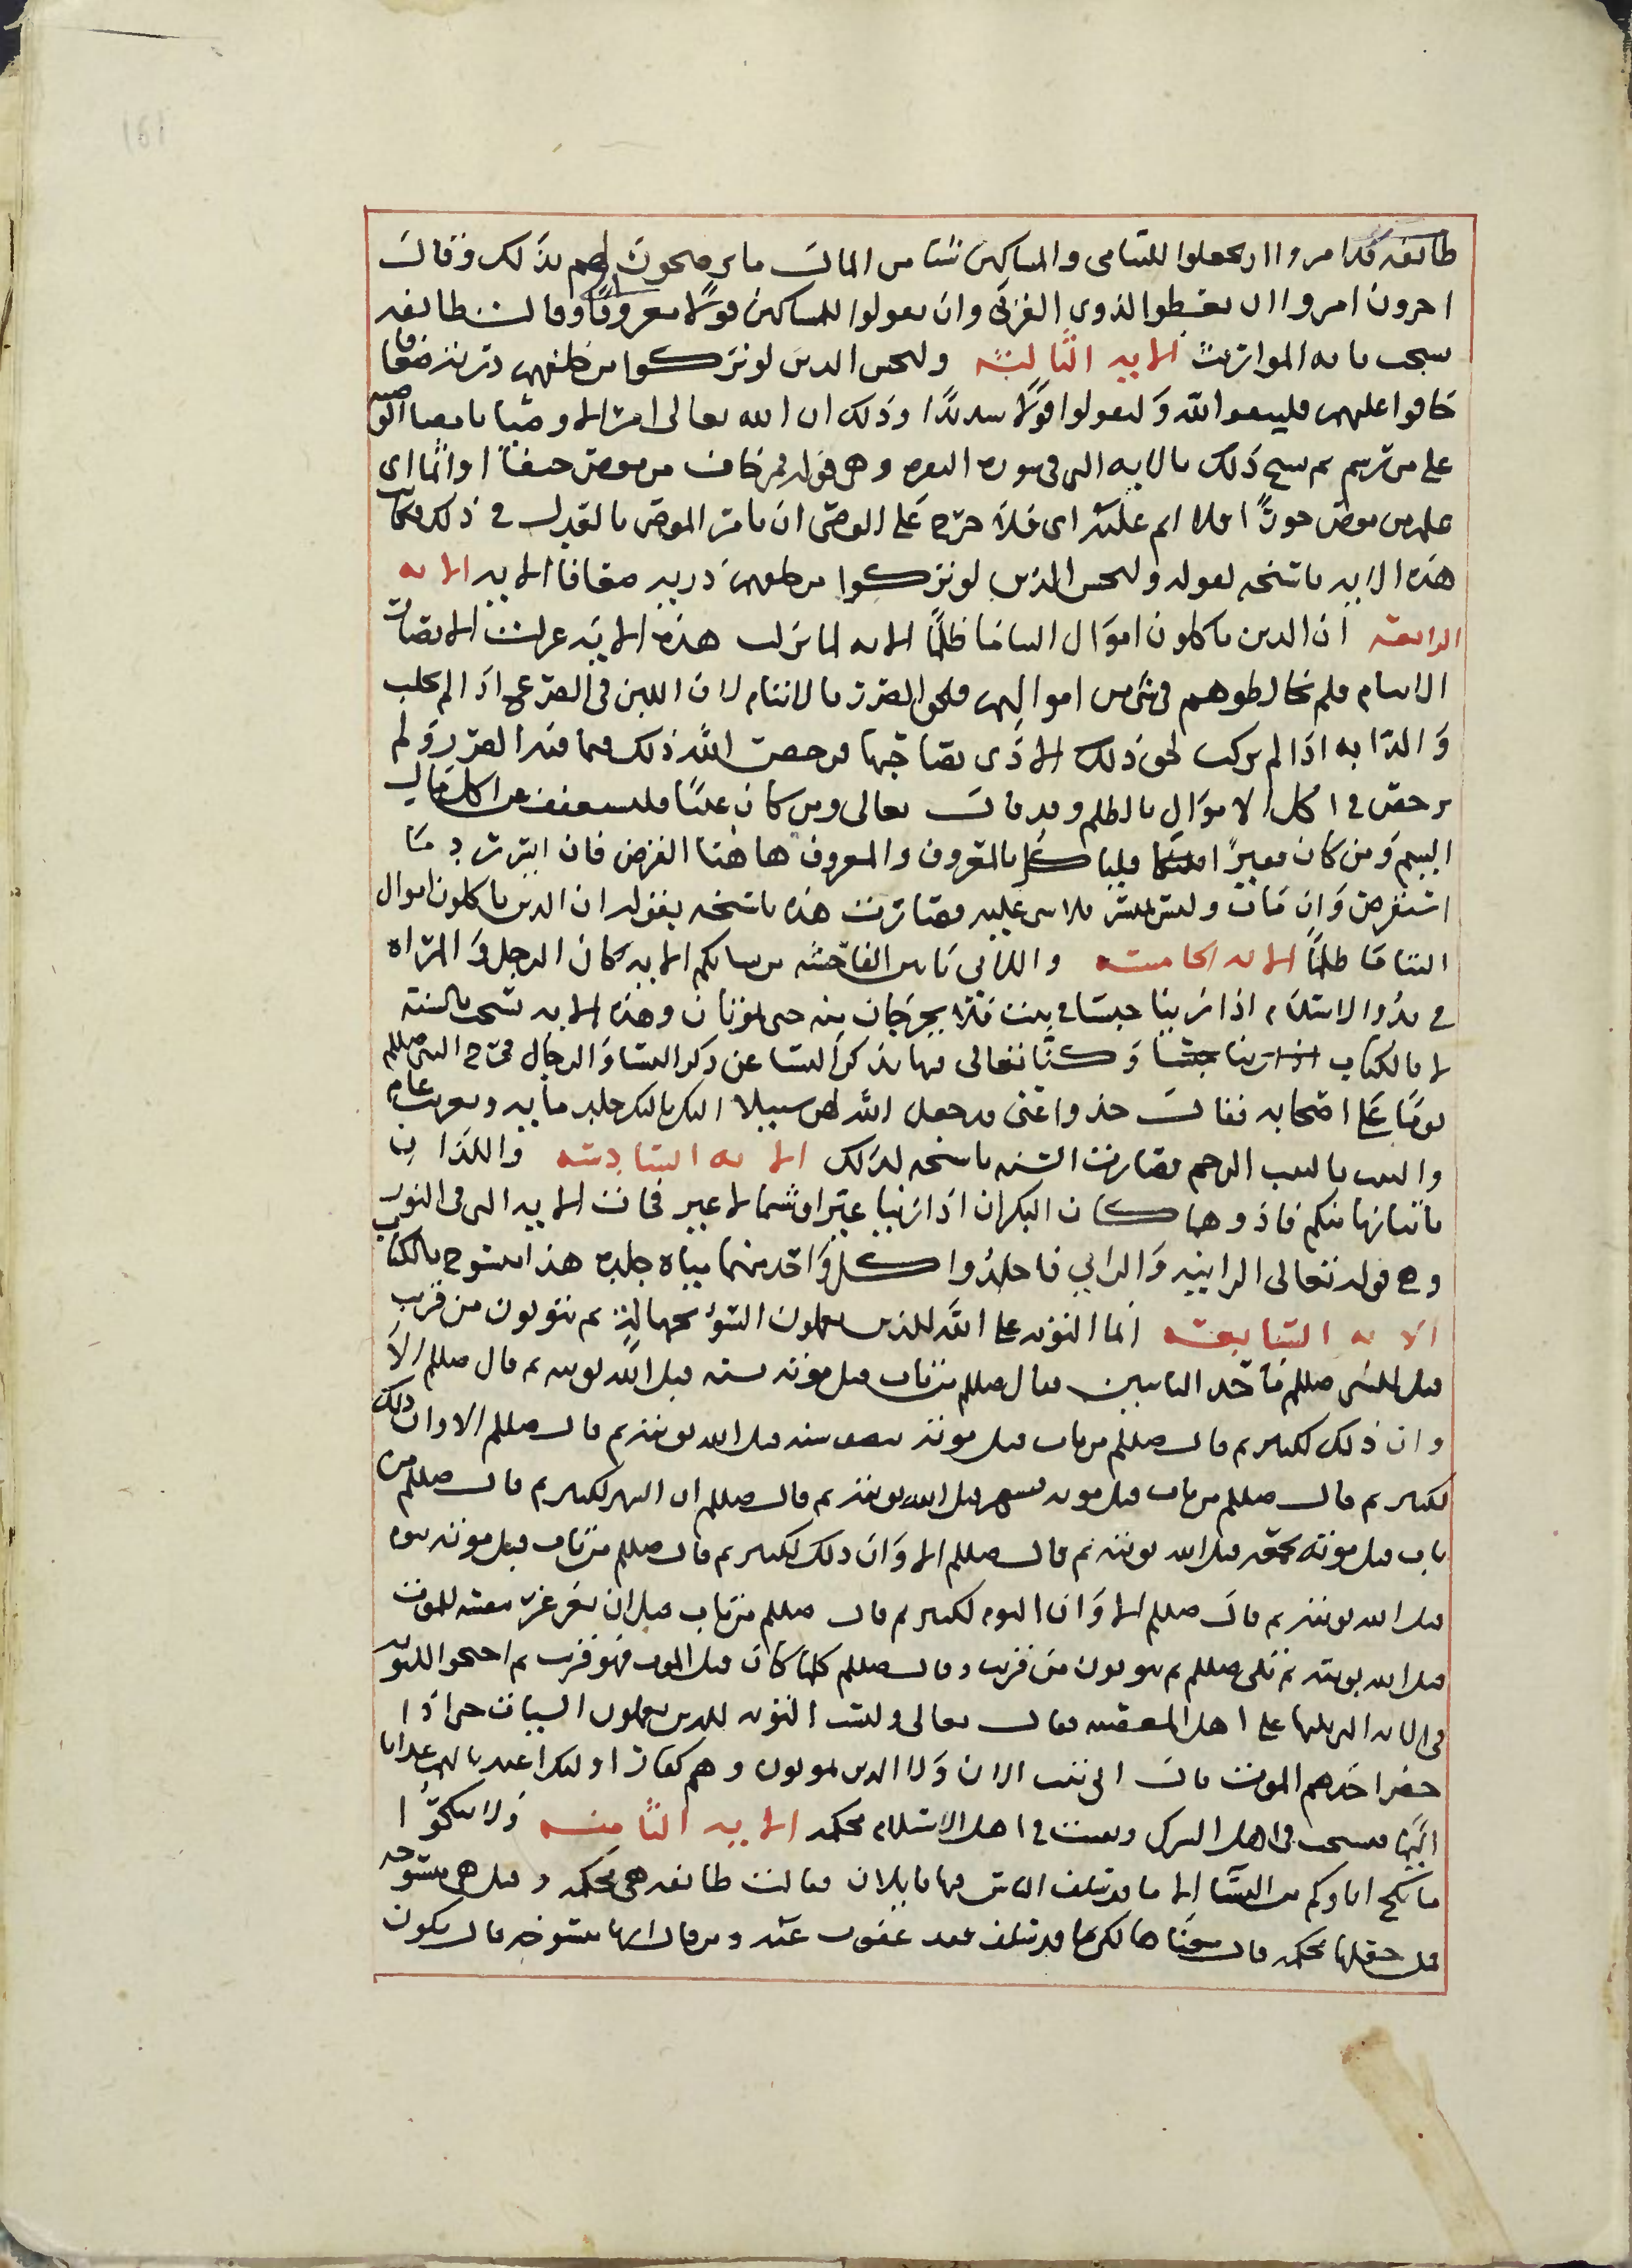 طائفه قد امروا ان يجعلوا لليتامى والمساكين شيا من المال ما يرضحون لهم بذلك وقال
اخرون امروا ان يعطوا لذوى القربى وان يقولوا للمساكين قولا معروفا وقالت طائفه
نسخت بايه المواريث الايه الثالثه وليخش الذين لو تركوا من خلفهم ذريه ضعافا
خافوا عليهم فليتقوا الله وليقولوا قولا سديدا وذلك ان الله تعالى امر الاوصيا بامضا الوصيه
على من ترسم ثم نسخ ذلك بالايه التى فى سوره البقره وهى قوله فمن خاف من موص جنفا او اثما اى
علم من موص جورا فلا اثم عليه اى فلا حرج على الوصى ان يامر الموصى بالعدل فى ذلك فكانت
هذه الايه ناسخه لقوله وليخش الذين لو تركوا من خلفهم ذريه ضعافا الايه الايه
الرابعه ان الذين ياكلون اموال اليتاما ظلما الايه لما نزلت هذه الايه عزلت الانصار
الايتام فلم يخالطوهم فى شى من اموالهم فلحق الضرر بالايتام لان اللبن فى الضرع اذا لم يحلب
والدابه اذا لم يركب لحق ذلك الاذى بصاحبها فرخص الله ذلك فيما فيه الضرر ولم
يرخص فى اكل الاموال بالظلم وقد قال تعالى ومن كان غنيا فليستعفف عن اكل مال
اليتيم ومن كان فقيرا فلياكل بالمعروف والمعروف هاهنا القرض فان ايسر رد ما
استقرض وان مات وليس بميسر فلا شى عليه فصارت هذه ناسخه بقوله ان الذين ياكلون اموال
اليتاما ظلما الايه الخامسه واللاتى ياتين الفاحشه من نسائكم الايه كان الرجل والمراه
فى بدو الاسلام اذا زنيا حبسا فى بيت فلا يخرجان منه حتى يموتان وهذه الايه نسخت بالسنه
لا بالكتاب وكنا تعالى فيها بذكر النسا عن ذكر النسا والرجال فخرج النبى صللم
يوما على اصحابه فقال خذوا عنى قد جعل الله لهن سبيلا البكر بالبكر جلد مايه وتغريب عام
والثيب بالثيب الرجم فصارت السنه ناسخه لذلك الايه السادسه واللذان
ياتيانها منكم فاذوهما كان البكران اذا زنيا عيرا وشتما لا غير فجات الايه التى فى النور
وهى قوله تعالى الزانيه والزانى فاجلدوا كل واحد منهما مياه جلده هذا منسوخ بالكتاب
الايه السابعه انما التوبه على الله للذين يعملون السوء بجهاله ثم يتوبون من قريب
قيل للنبى صللم فاحد التائبين فقال صللم من تاب قبل موته بسنه قبل الله توبته ثم قال صللم الا
وان ذلك لكثير ثم قال صللم من تاب قبل موته بنصف سنه قبل الله توبته ثم قال صللم الا وان ذلك
لكثير ثم قال صللم من تاب قبل موته بشهر قبل الله توبته ثم قال صللم ان الشهر لكثير ثم قال صللم من
تاب قبل موته بجمعه قبل الله توبته ثم قال صللم الا وان ذلك لكثير ثم قال صللم من تاب قبل موته بيوم
قبل الله توبته ثم قال صللم الا وان اليوم لكثير ثم قال صللم من تاب قبل ان يغرغر نفسه للموت
قبل الله توبته ثم تلى صللم ثم يتوبون من قريب وقال صللم كلما كان قبل الموت فهو قريب ثم احتجر التوبه
فى الايه التى تليها على اهل المعصيه فقال تعالى وليست التوبه للذين يعملون السيات حتى اذا
حضر احدهم الموت قال انى تبت الان ولا الذين يموتون وهم كفار اوليك اعتدنا لهم عذابا
اليما فنسخت فى اهل الشرك وبقيت فى اهل الاسلام محكمه الايه الثامنه ولا تنكحوا
ما نكح اباوكم من النسا الا ما قد سلف الناس فيها قايلان فقالت طائفه هى محكمه وقيل هى منسوخه
فمن جعلها محكمه قال معناها لكن ما قد سلف فقد عفوت عنه ومن قال انها منسوخه قال يكون